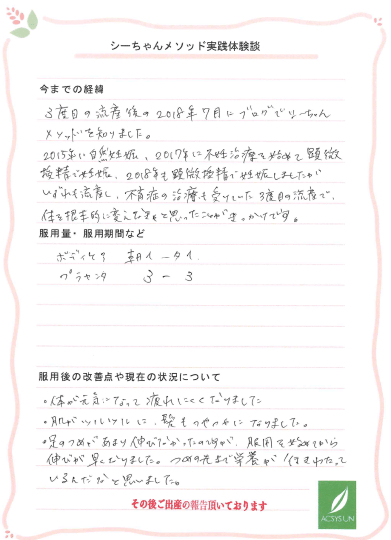 シーちゃんメソッド実践体験談
今までの経緯
3度目の流産後の2018年7月にブログでしーちゃん
メソッドを知りました。
2015年に自然妊娠、2017年に不妊治療を始めて顕微
授精で妊娠、2018年も顕微授精で妊娠しましたが
いずれも流産し、不育症の治療も受けていた3度目の流産で、
体を根本的に変えなきゃと思ったことがきっかけです。
服用量・服用期間など
朝1-夕1
プラセンタ 3-3
服用後の改善点や現在の状況について
・体が元気になって疲れにくくなりました
・肌がツルツルに、髪もつやつやになりました。
・足のつめがあまり伸びなかったのですが、服用を始めてから
伸びが早くなりました。つめの先まで栄養が行きわたって
いるんだなと思いました。
その後ご出産の報告頂いております
ACSYSUN